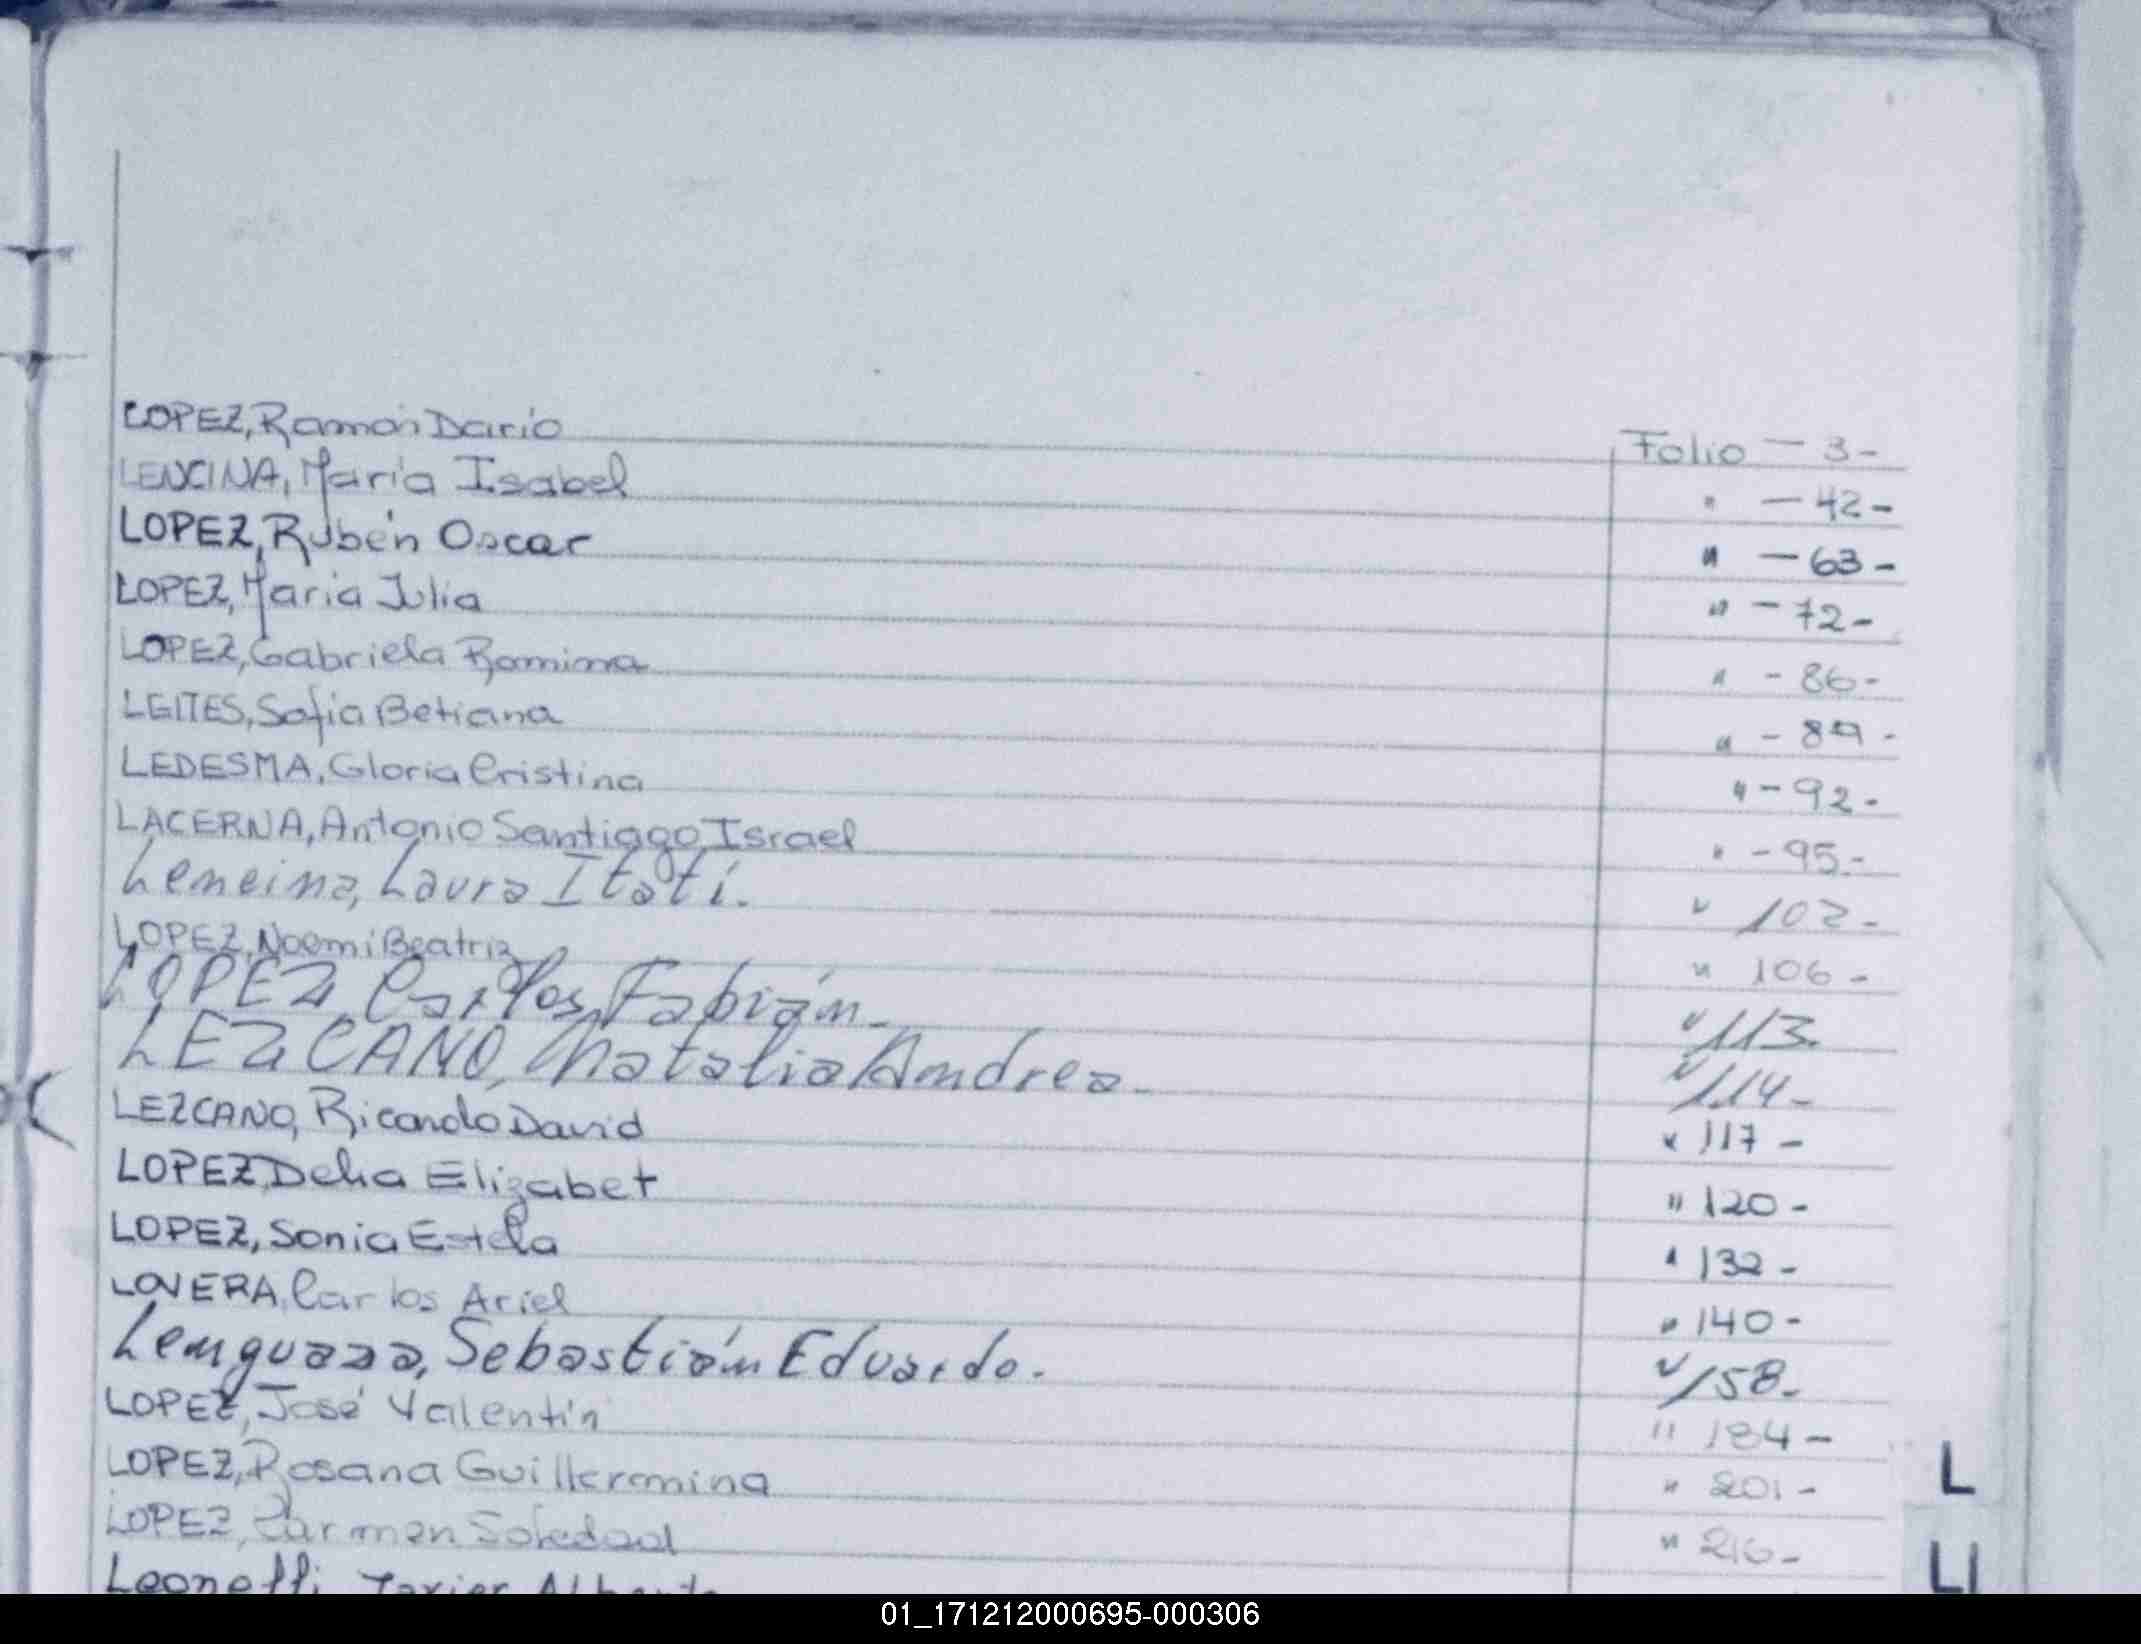 LOPEZ, Ramón Dario Folio - 3 -
LENCINA, María Isabel " - 42 -
LOPEZ, Rubén Oscar " - 63 -
LOPEZ, Maria Julia " - 72 -
LOPEZ, Gabriela Romina " - 86 -
LEITES, Sofia Betiana " - 89 -
LEDESMA, Gloria Cristina " - 92 -
LACERNA, Antonio Santiago Israel " - 95 -
Lencina, Laura Itatí. " 102 -
LOPEZ, Noemi Beatriz " 106 -
LOPEZ, Carlos Fabián - " 113.
LEZCANO, Natalia Andrea - " 114 -
LEZCANO, Ricardo David " 117 -
LOPEZ, Delia Elizabet " 120 -
LOPEZ, Sonia Estela " 132 -
LOVERA, Carlos Ariel " 140 -
Lenguaza, Sebastián Eduardo. " 158 -
LOPEZ, José Valentín " 184 -
LOPEZ, Rosana Guillermina " 201 -
LOPEZ, Carmen Soledad " 216 -
L
Javier
Ll
01_171212000695-000306